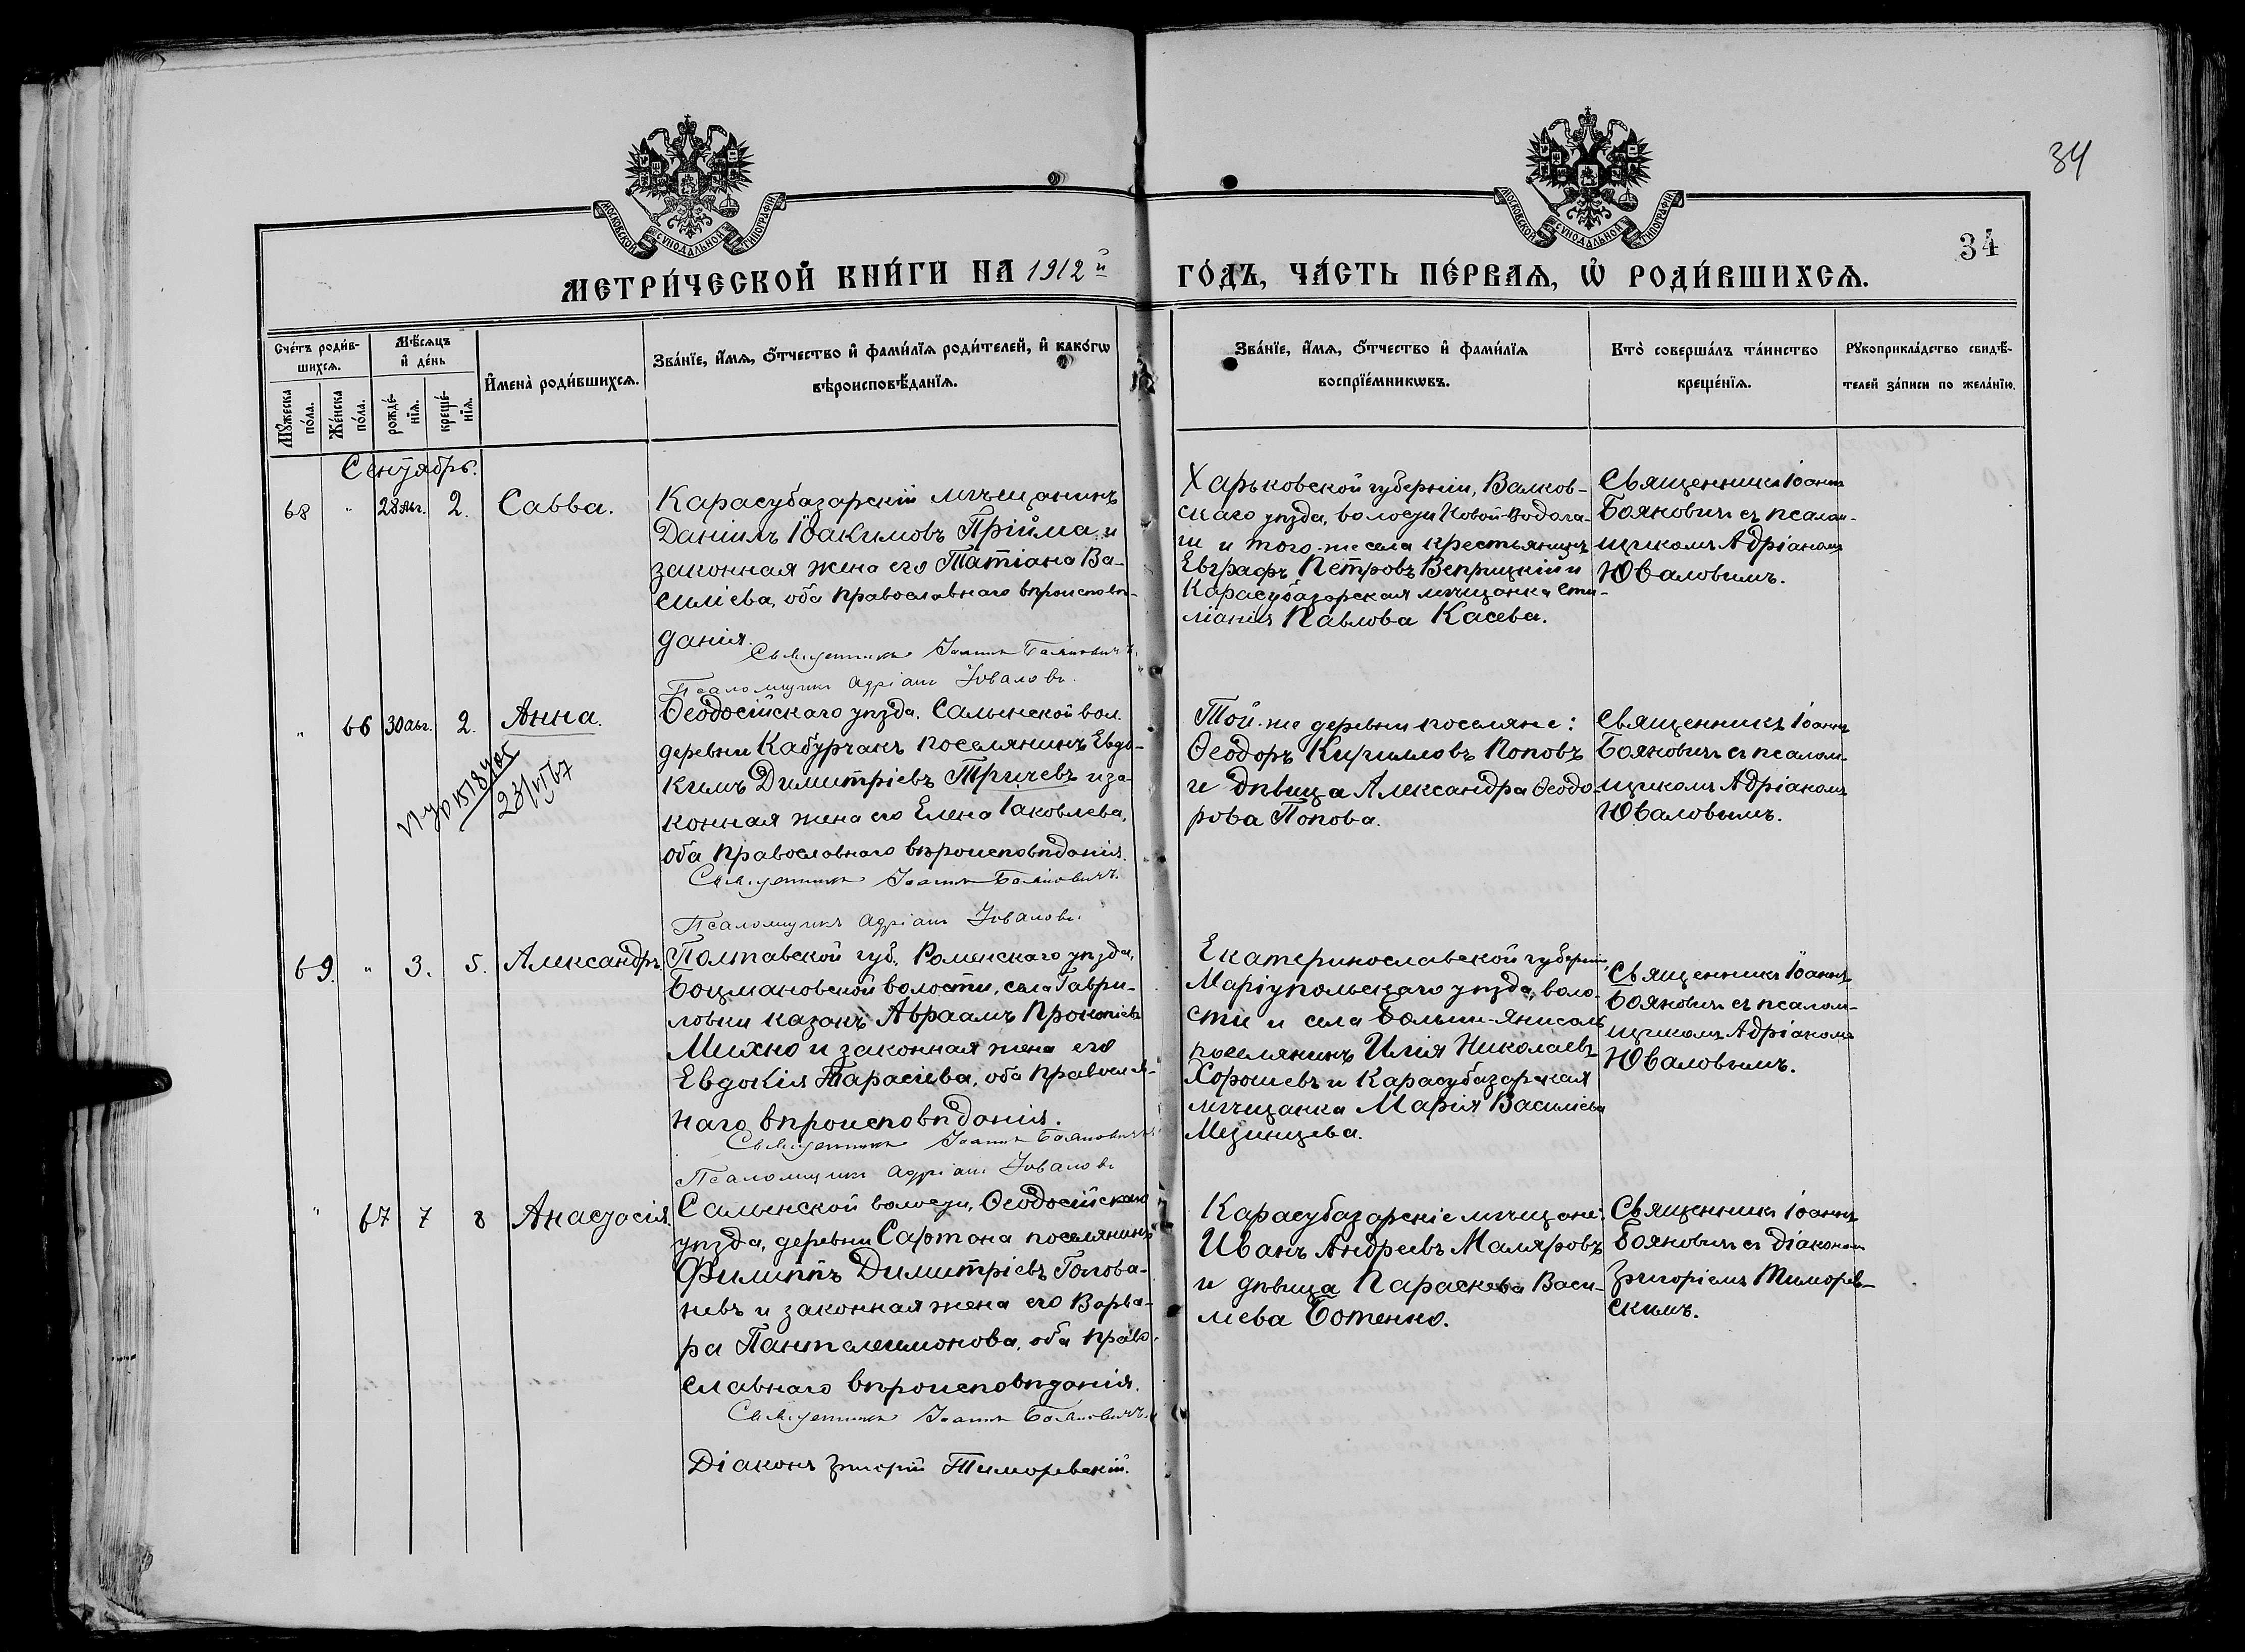 34
МОСКОВСКОЙ СѴНОДАЛЬНОЙ ТИПОГРАФІИ
МОСКОВСКОЙ СѴНОДАЛЬНОЙ ТИПОГРАФІИ
34
МЕТРИ́ЧЕСКОЙ КНИ́ГИ НА 1912й ГО́ДЪ, ЧА́СТЬ ПЕ́РВАѦ, Ѡ҆ РОДИ́ВШИХСѦ.
Сче́тъ роди́в-
шихсѧ.
Мꙋ́жеска
по́ла.
Же́нска
по́ла.
Мѣ́сѧцъ
и҆ де́нь
рожде́-
нїѧ.
креще́-
нїѧ.
И҆мена̀ роди́вшихсѧ.
Зва́нїе, и҆́мѧ, ѻ҆́тчество и҆ фами́лїѧ роди́телей, и҆ како́гѡ
вѣроисповѣ́данїѧ.
Зва́нїе, и҆́мѧ, ѻ҆́тчество и҆ фами́лїѧ
воспрїе́мникѡвъ.
Кто̀ соверша́лъ та́инство
креще́нїѧ.
Рꙋкоприкла́дство свидѣ́-
телей за́писи по жела́нїю.
Сентябрь.
68 " 28 авг. 2. Савва.
Карасубазарскій мѣщанинъ
Даніилъ Іоакимовъ Прійма и
законная жена его Татіана Ва-
силіева, оба православнаго вѣроисповѣ-
данія.
Священникъ Іоаннъ Бояновичъ.
Псаломщикъ Адріанъ Юваловъ.
Харьковской губерніи, Валков-
скаго уѣзда, волости Новой-Водола-
ги и того-же села крестьянинъ
Евграфъ Петровъ Веприцкій и
Карасубазарская мѣщанка Сти-
ліанія Павлова Касева.
Священникъ Іоаннъ
Бояновичъ съ псалом-
щикомъ Адріаномъ
Юваловымъ.
" 66 30 авг. 2. Анна.
23/VI 67
Ѳеодосійскаго уѣзда, Салынской вол.
деревни Кабурчакъ поселянинъ Евдо-
кимъ Димитріевъ Тричевъ и за-
конная жена его Елена Іаковлева,
оба православнаго вѣроисповѣданія.
Священникъ Іоаннъ Бояновичъ.
Псаломщикъ Адріанъ Юваловъ.
Той-же деревни поселяне:
Ѳеодоръ Кирилловъ Поповъ
и дѣвица Александра Ѳеодо-
рова Попова.
Священникъ Іоаннъ
Бояновичъ съ псалом-
щикомъ Адріаномъ
Юваловымъ.
69. " 3. 5. Александръ.
Полтавской губ. Роменскаго уѣзда,
Боцмановской волости, села Гаври-
ловки казакъ Авраамъ Прокопіевъ
Михно и законная жена его
Евдокія Тарасіева, оба православ-
наго вѣроисповѣданія.
Священникъ Іоаннъ Бояновичъ.
Псаломщикъ Адріанъ Юваловъ
Екатеринославской губерніи,
Маріупольскаго уѣзда, воло-
сти и села Больши-Янисоль
поселянинъ Илія Николаевъ
Хорошевъ и Карасубазарская
мѣщанка Марія Василіева
Мезинцева.
Священникъ Іоаннъ
Бояновичъ съ псалом-
щикомъ Адріаномъ
Юваловымъ.
" 67 7 8 Анастасія.
Салынской волости, Ѳеодосійскаго
уѣзда, деревни Сартана поселянинъ
Филиппъ Димитріевъ Голова-
невъ и законная жена его Варва-
ра Панталеимонова, оба право-
славнаго вѣроисповѣданія.
Священникъ Іоаннъ Бояновичъ.
Діаконъ Григорій Тиморевскій.
Карасубазарскіе мѣщане:
Иванъ Андреевъ Маляровъ
и дѣвица Параскева Васи-
ліева Ботенко.
Священникъ Іоаннъ
Бояновичъ съ діакономъ
Григоріемъ Тиморев-
скимъ.